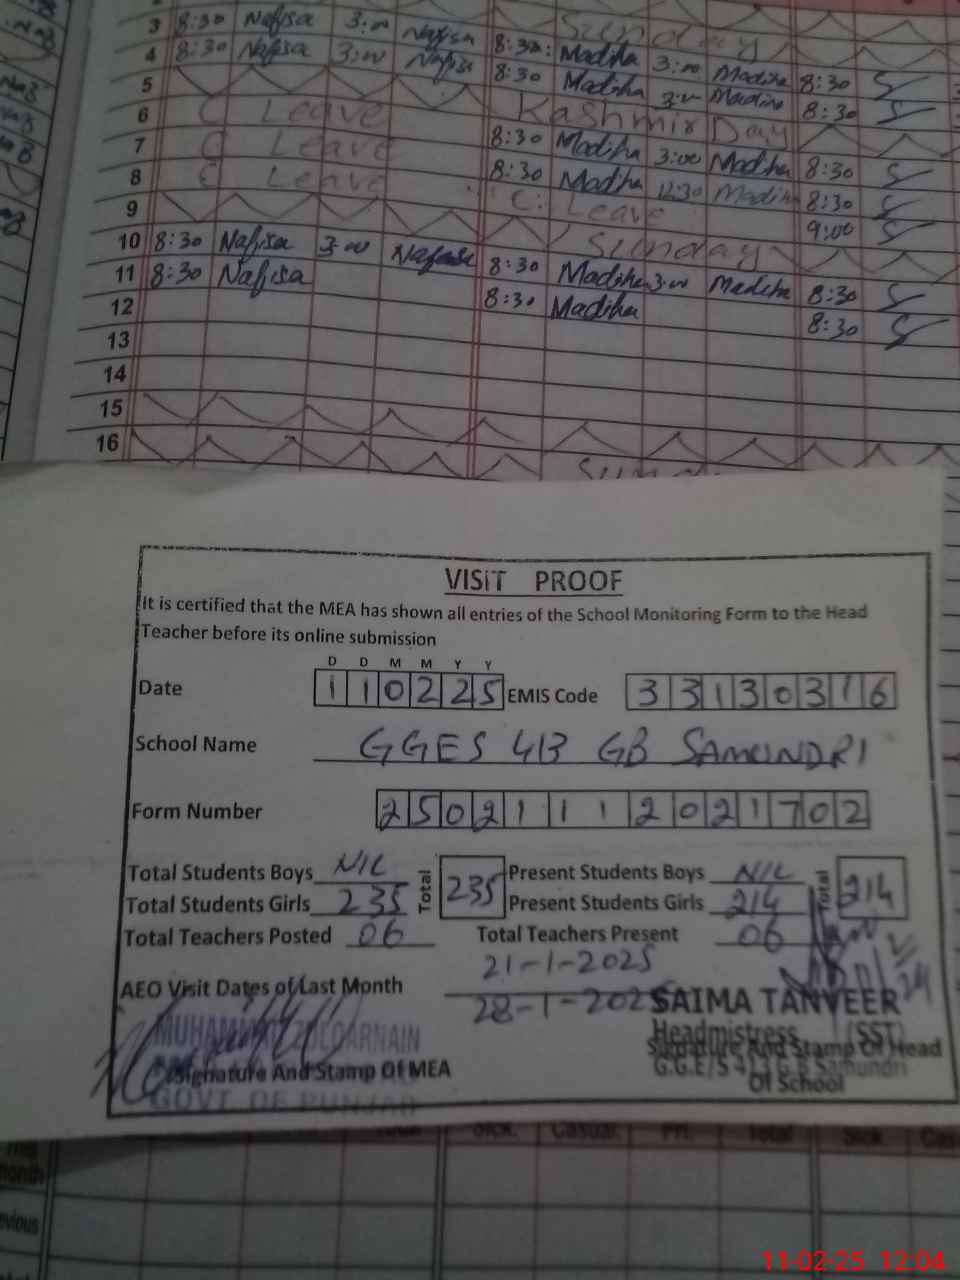 3 8:30 Nafisa 3:00 Nafisa Sunday
4 8:30 Nafisa 3:00 Nafisa 8:30 Madiha 3:00 Madiha 8:30
5 8:30 Madiha 3:00 Madiha 8:30
6 C Leave Kashmir Day
7 C Leave 8:30 Madiha 3:00 Madiha 8:30
8 C Leave 8:30 Madiha 12:30 Madiha 8:30
9 C. Leave 9:00
10 8:30 Nafisa 3:00 Nafisa Sunday
11 8:30 Nafisa 8:30 Madiha 3:00 Madiha 8:30
12 8:30 Madiha 8:30
13
14
15
16
VISIT PROOF
It is certified that the MEA has shown all entries of the School Monitoring Form to the Head
Teacher before its online submission
D D M M Y Y
Date 110225 EMIS Code 33130316
School Name GGES 413 GB SAMUNDRI
Form Number 25021112021702
Total Students Boys NIL Total 235 Present Students Boys NIL Total 214
Total Students Girls 235 Present Students Girls 214
Total Teachers Posted 06 Total Teachers Present 06
21-1-2025
AEO Visit Dates of Last Month 28-1-2025
SAIMA TANVEER
MUHAMMAD ZULQARNAIN
Headmistress (SST)
Signature And Stamp Of MEA
Signature And Stamp Of Head
G.G.E/S 413 G.B Samundri
Of School
GOVT OF PUNJAB
Sick. Casual. Pri. Total Sick.
month
11-02-25 12:04